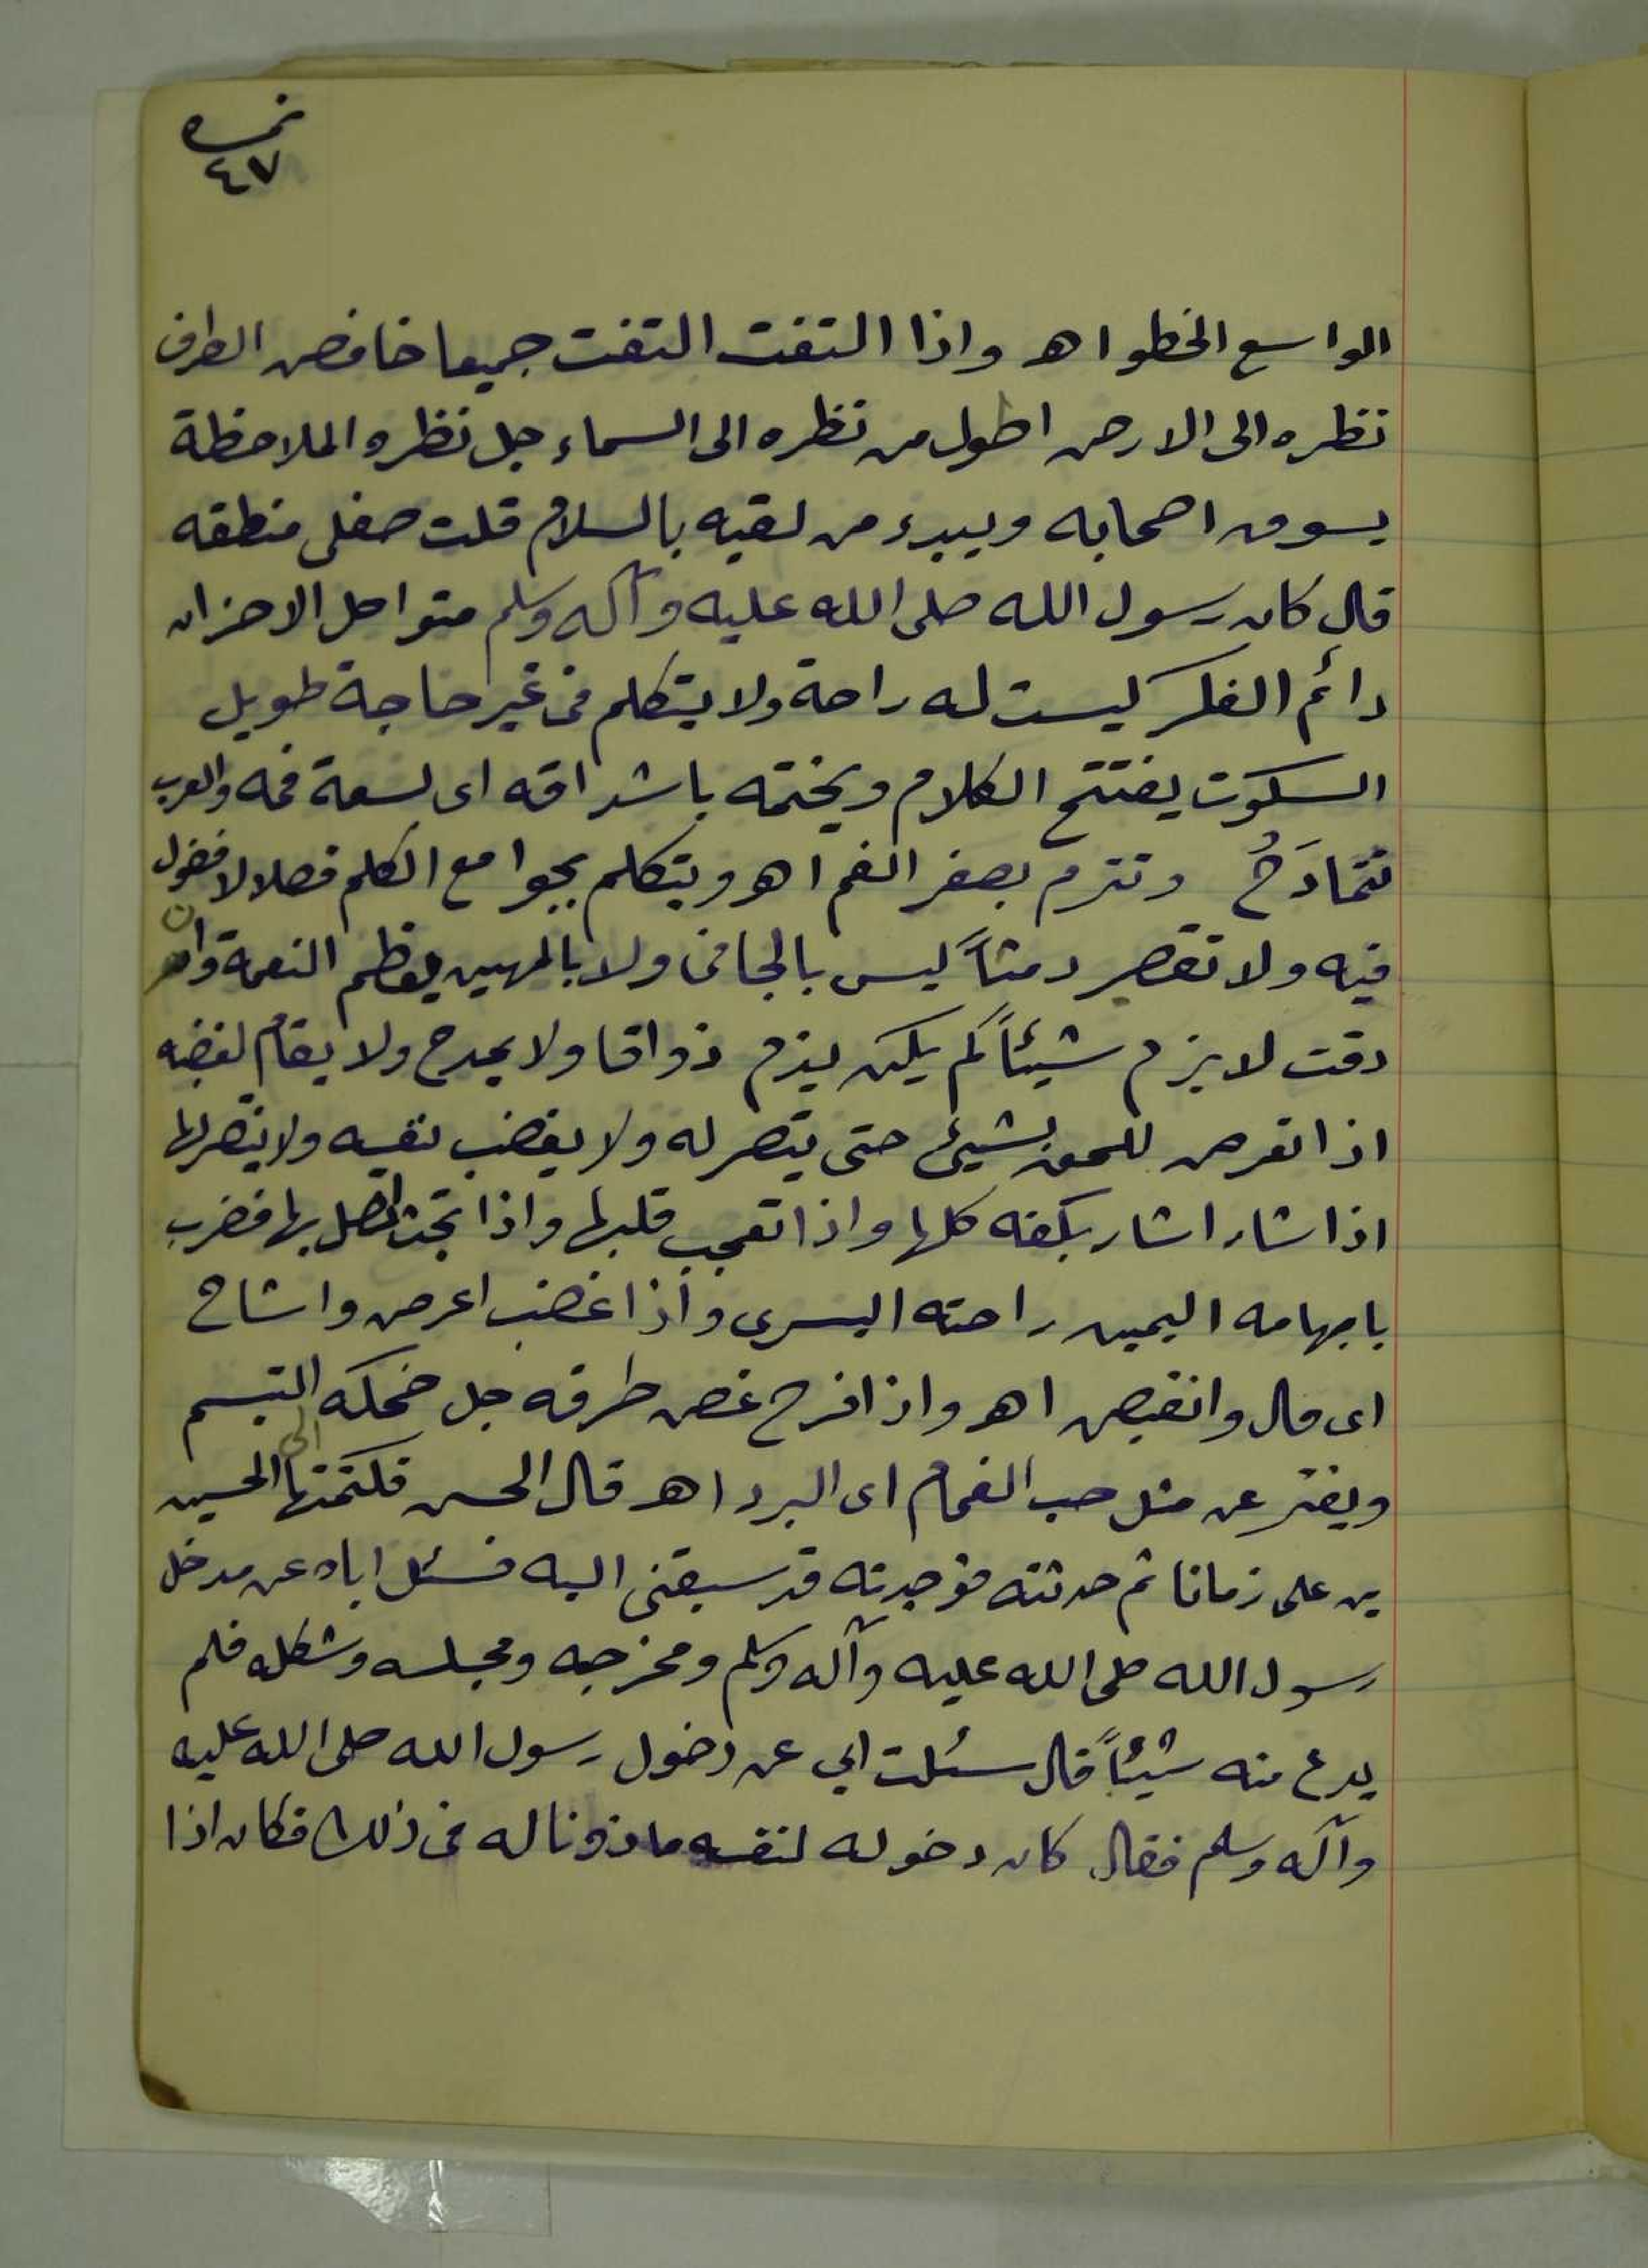 نمره
٤٧
الواسع الخطو اهـ واذا التفت التفت جميعا خافض الطرف
نظره الى الارض اطول من نظره الى السماء جل نظره الملاحظة
يسوق اصحابه ويبدء من لقيه بالسلام قلت صف لى منطقه
قال كان رسول الله صلى الله عليه وآله وسلم متواصل الاحزان
دائم الفكر ليست له راحة ولا يتكلم فى غير حاجة طويل
السكوت يفتتح الكلام ويختمه باشداقه اى لسعة فمه والعرب
تتمادَحُ وتذم بصغر الفم اهـ ويتكلم بجوامع الكلم فصلا لا فضول
فيه ولا تقصير دمثاً ليس بالجافى ولا بالمهين يعظم النعمة وان
دقت لا يذم شيئاً لم يكن يذم ذواقا ولا يمدح ولا يقام لغضبه
اذا تعرض للحق بشيئ حتى ينتصر له ولا يغضب لنفسه ولا ينتصر لها
اذا اشار اشار بكفه كلها واذا تعجب قلبها واذا تحدث اتصل بها فضرب
بابهامه اليمين راحته اليسرى واذا غضب اعرض واشاح
اى مال وانقبض اهـ واذا فرح غض طرفه جل ضحكه التبسم
ويفتر عن مثل حب الغمام اى البرد اهـ قال الحسن فكتمتها الحسين
بن على زمانا ثم حدثته فوجدته قد سبقنى اليه فسئل اباه عن مدخل
رسول الله صلى الله عليه وآله وسلم ومخرجه ومجلسه وشكله فلم
يدع منه شيئاً قال سئلت ابي عن دخول رسول الله صلى الله عليه
وآله وسلم فقال كان دخوله لنفسه ماذونا له فى ذلك فكان اذا